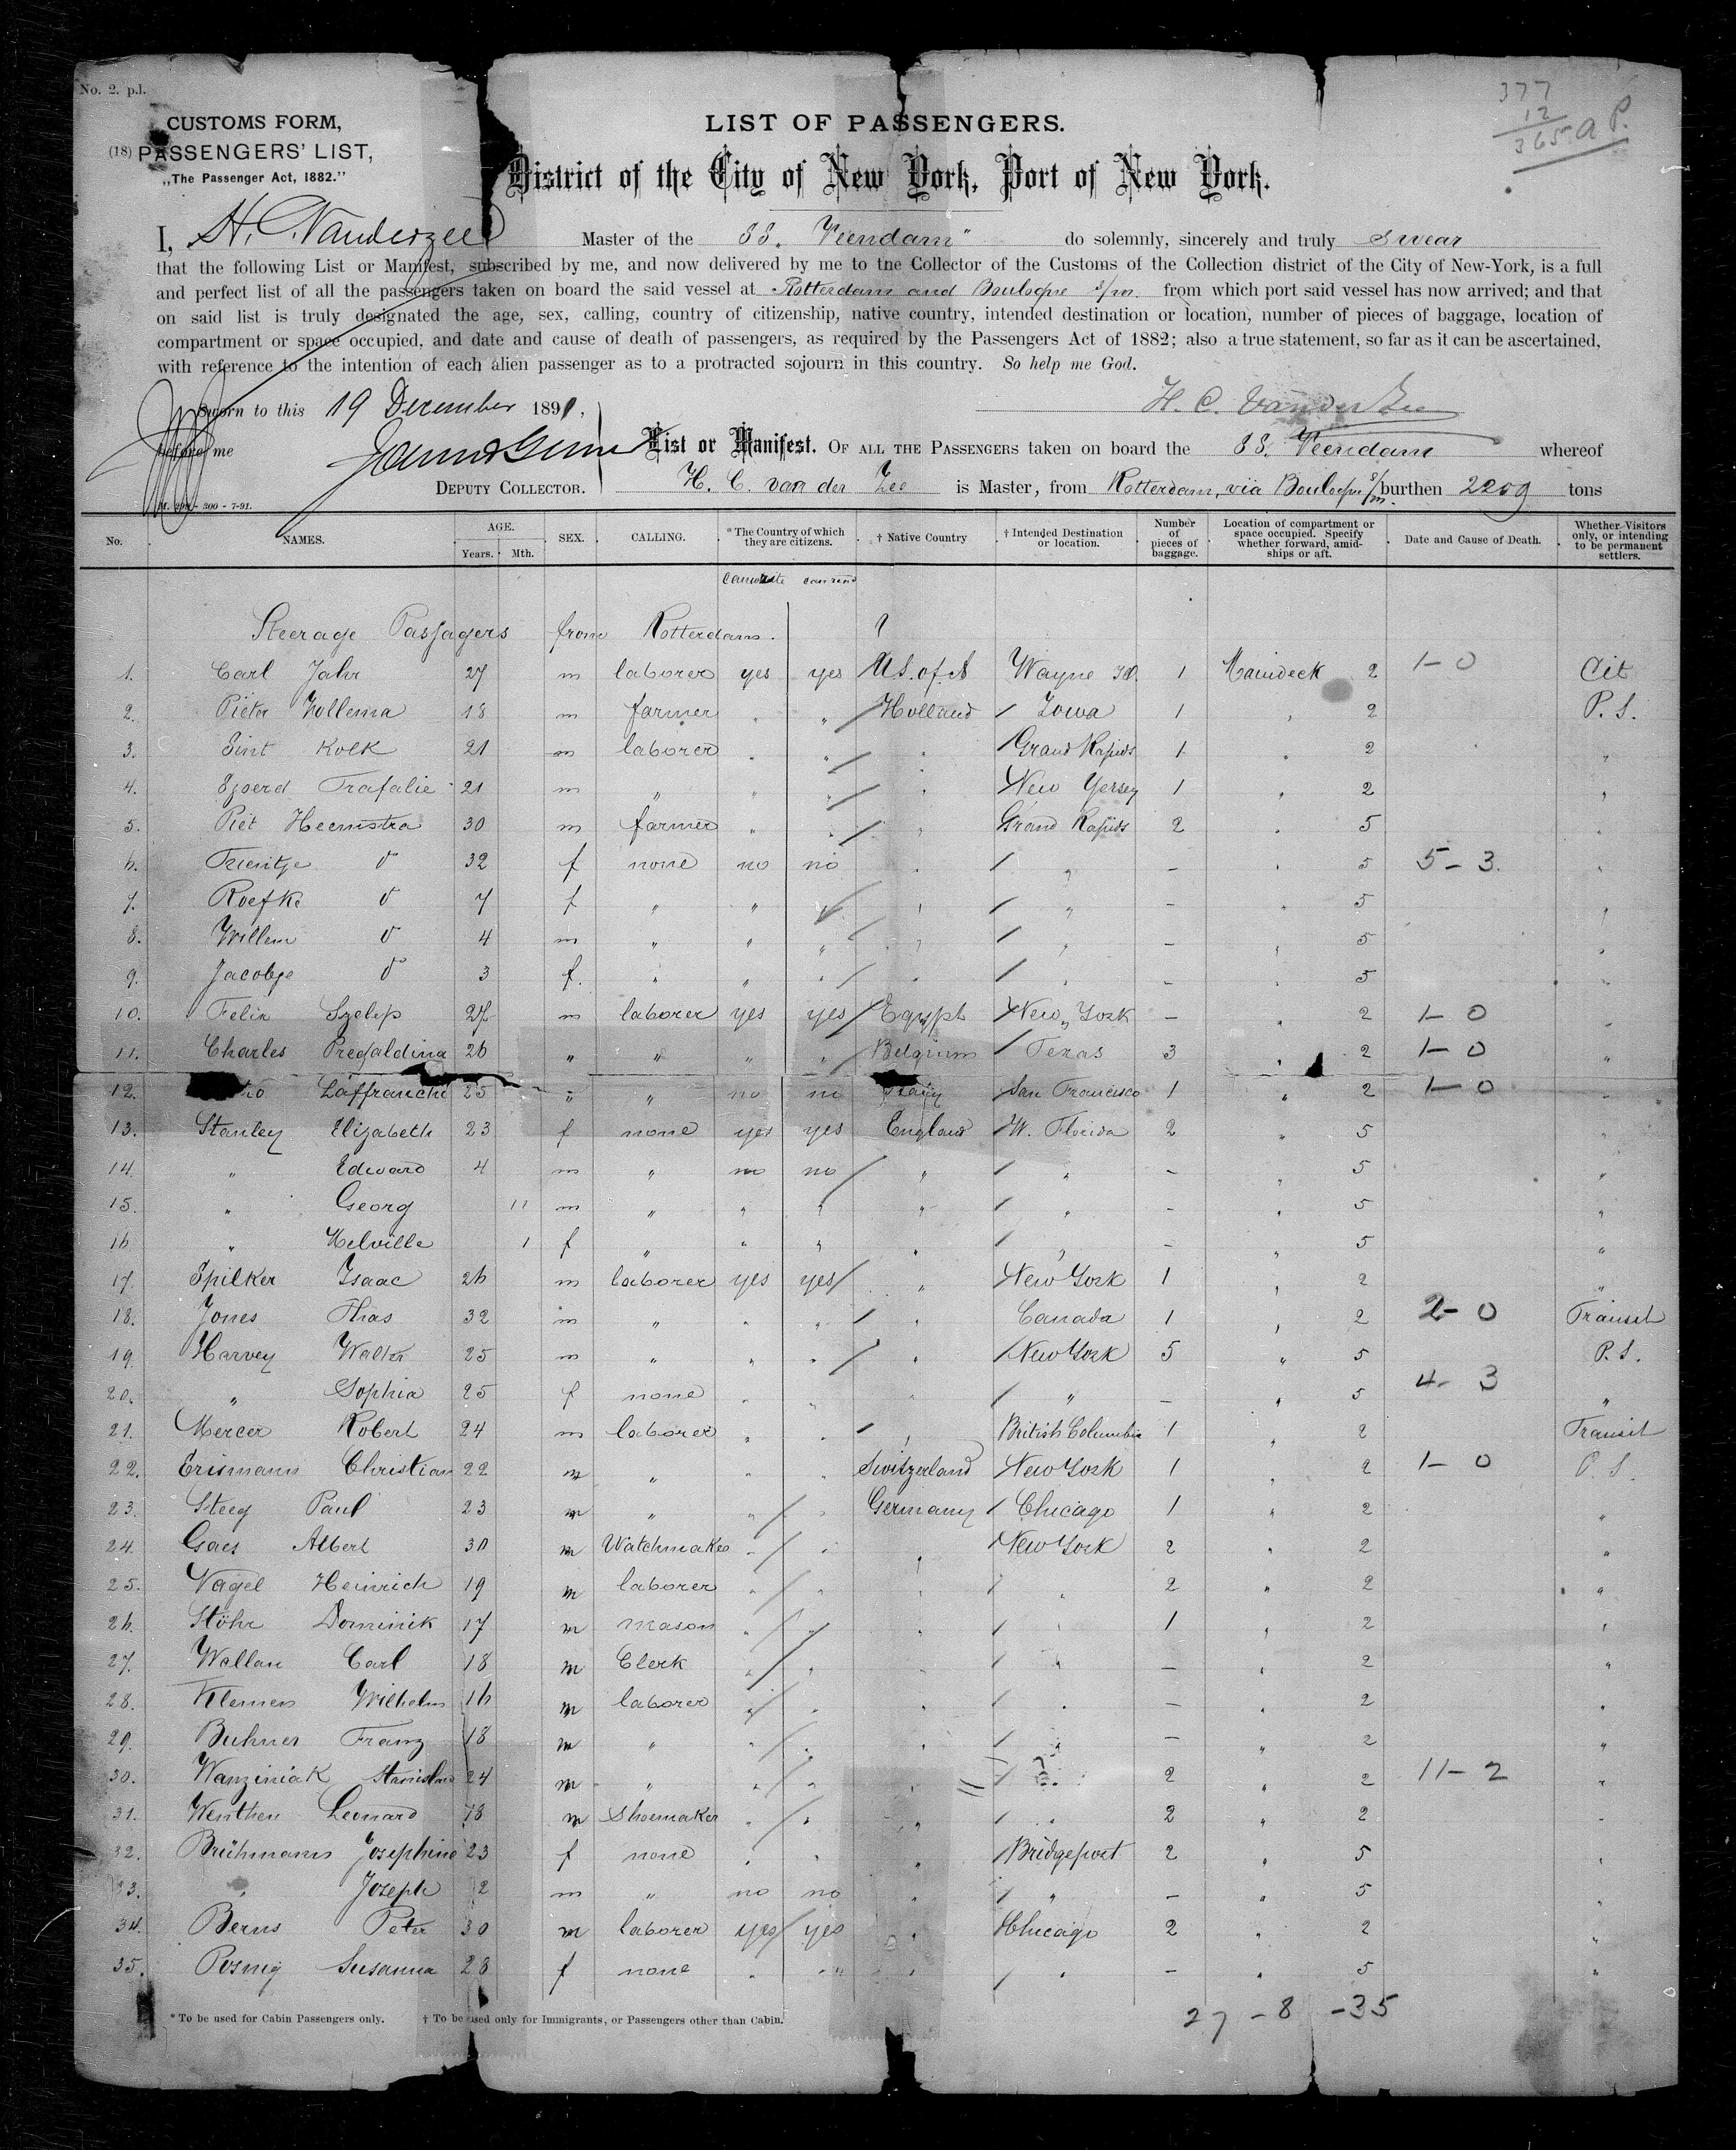 No. 2. p.l.
377
12
365 a P.
CUSTOMS FORM,
(18) PASSENGERS' LIST,
„The Passenger Act, 1882."
LIST OF PASSENGERS.
District of the City of New York, Port of New York.
I, H. C. Vanderzee Master of the SS. Veendam" do solemnly, sincerely and truly swear
that the following List or Manifest, subscribed by me, and now delivered by me to the Collector of the Customs of the Collection district of the City of New-York, is a full
and perfect list of all the passengers taken on board the said vessel at Rotterdam and Boulogne s/m. from which port said vessel has now arrived; and that
on said list is truly designated the age, sex, calling, country of citizenship, native country, intended destination or location, number of pieces of baggage, location of
compartment or space occupied, and date and cause of death of passengers, as required by the Passengers Act of 1882; also a true statement, so far as it can be ascertained,
with reference to the intention of each alien passenger as to a protracted sojourn in this country. So help me God.
Sworn to this 19 December 1891, H. C. van der Zee
before me
List or Manifest. OF ALL THE PASSENGERS taken on board the SS. Veendam whereof
DEPUTY COLLECTOR. H. C. van der Zee is Master, from Rotterdam, via Boulogne s/m. burthen 2209 tons
No. NAMES. AGE. Years. Mth. SEX. CALLING. * The Country of which they are citizens. † Native Country † Intended Destination or location. Number of pieces of baggage. Location of compartment or space occupied. Specify whether forward, amidships or aft. Date and Cause of Death. Whether Visitors only, or intending to be permanent settlers.
can write can read
Steerage Passagers from Rotterdam.
1. Carl Jahr 27 m laborer yes yes U.S. of A Wayne 1 Maindeck 2 1-0 Cit
2. Pieter Hollema 18 m farmer " " Holland Iowa 1 " 2 P.S.
3. Sint Kolk 21 m laborer " " " Grand Rapids 1 " 2 "
4. Sjoerd Trafalie 21 m " " " " New Yersey 1 " 2 "
5. Piet Heemstra 30 m farmer " " " Grand Rapids 2 " 5 "
6. Trientje d° 32 f none no no " " - " 5 5-3. "
7. Roefke d° 7 f " " " " " - " 5 "
8. Willem d° 4 m " " " " " - " 5 "
9. Jacobje d° 3 f. " " " " " - " 5 "
10. Felix Szelep 27 m laborer yes yes Egypt New York - " 2 1-0 "
11. Charles Pregaldina 26 " " " " Belgium Texas 3 " 2 1-0 "
12. Laffranchi 25 " " no no Italy San Francisco 1 " 2 1-0 "
13. Stanley Elizabeth 23 f none yes yes England W. Florida 2 " 5 "
14. " Edward 4 m " no no " " - " 5 "
15. " Georg 11 m " " " " " - " 5 "
16 " Melville 1 f " " " " " - " 5 "
17. Spilker Isaac 26 m laborer yes yes " New York 1 " 2 "
18. Jones Thas 32 m " " " " Canada 1 " 2 2-0 Transit
19. Harvey Walter 25 m " " " " New York 5 " 5 P.S.
20. " Sophia 25 f none " " " " - " 5 4-3 "
21. Mercer Robert 24 m laborer " " " British Columbia 1 " 2 Transit
22. Erismann Christian 22 m " " " Switzerland New York 1 " 2 1-0 P.S.
23. Steeg Paul 23 m " " " Germany Chicago 1 " 2 "
24. Gaes Albert 30 m Watchmaker " " " New York 2 " 2 "
25. Nagel Heinrich 19 m laborer " " " " 2 " 2 "
26. Stöhr Dominik 17 m mason " " " " 1 " 2 "
27. Wallau Carl 18 m Clerk " " " " - " 2 "
28. Klemens Wilhelm 16 m laborer " " " " - " 2 "
29. Buhner Franz 18 m " " " " " - " 2 "
30. Wanziniak Stanislaus 24 m " " " " 2 " 2 11-2 "
31. Wenthen Leonard 78 m Shoemaker " " " " 2 " 2 "
32. Brühmann Josephine 23 f none " " " Bridgeport 2 " 5 "
33. " Joseph 2 m " no no " " - " 5 "
34. Berns Peter 30 m laborer yes yes " Chicago 2 " 2 "
35. Posnig Susanna 28 f none " " " " - " 5 "
* To be used for Cabin Passengers only. † To be used only for Immigrants, or Passengers other than Cabin.
27 - 8 - 35